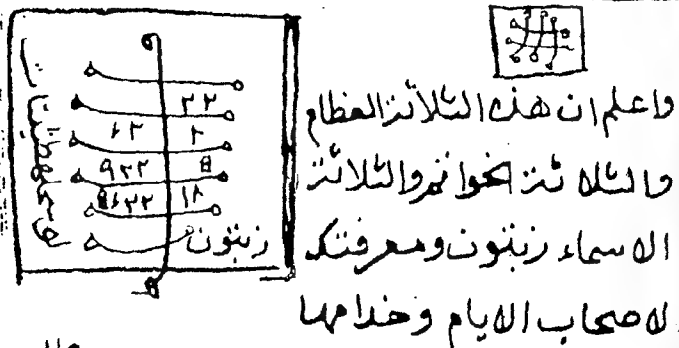 واعلم ان هذه الثلاثة العظام
والثلاثة الخواتم والثلاثة
الاسماء زيتون ومعرفتك
لاصحاب الايام وخدامها
٢٢
٢ ١٢
٩٢٢
١٨
زيتون